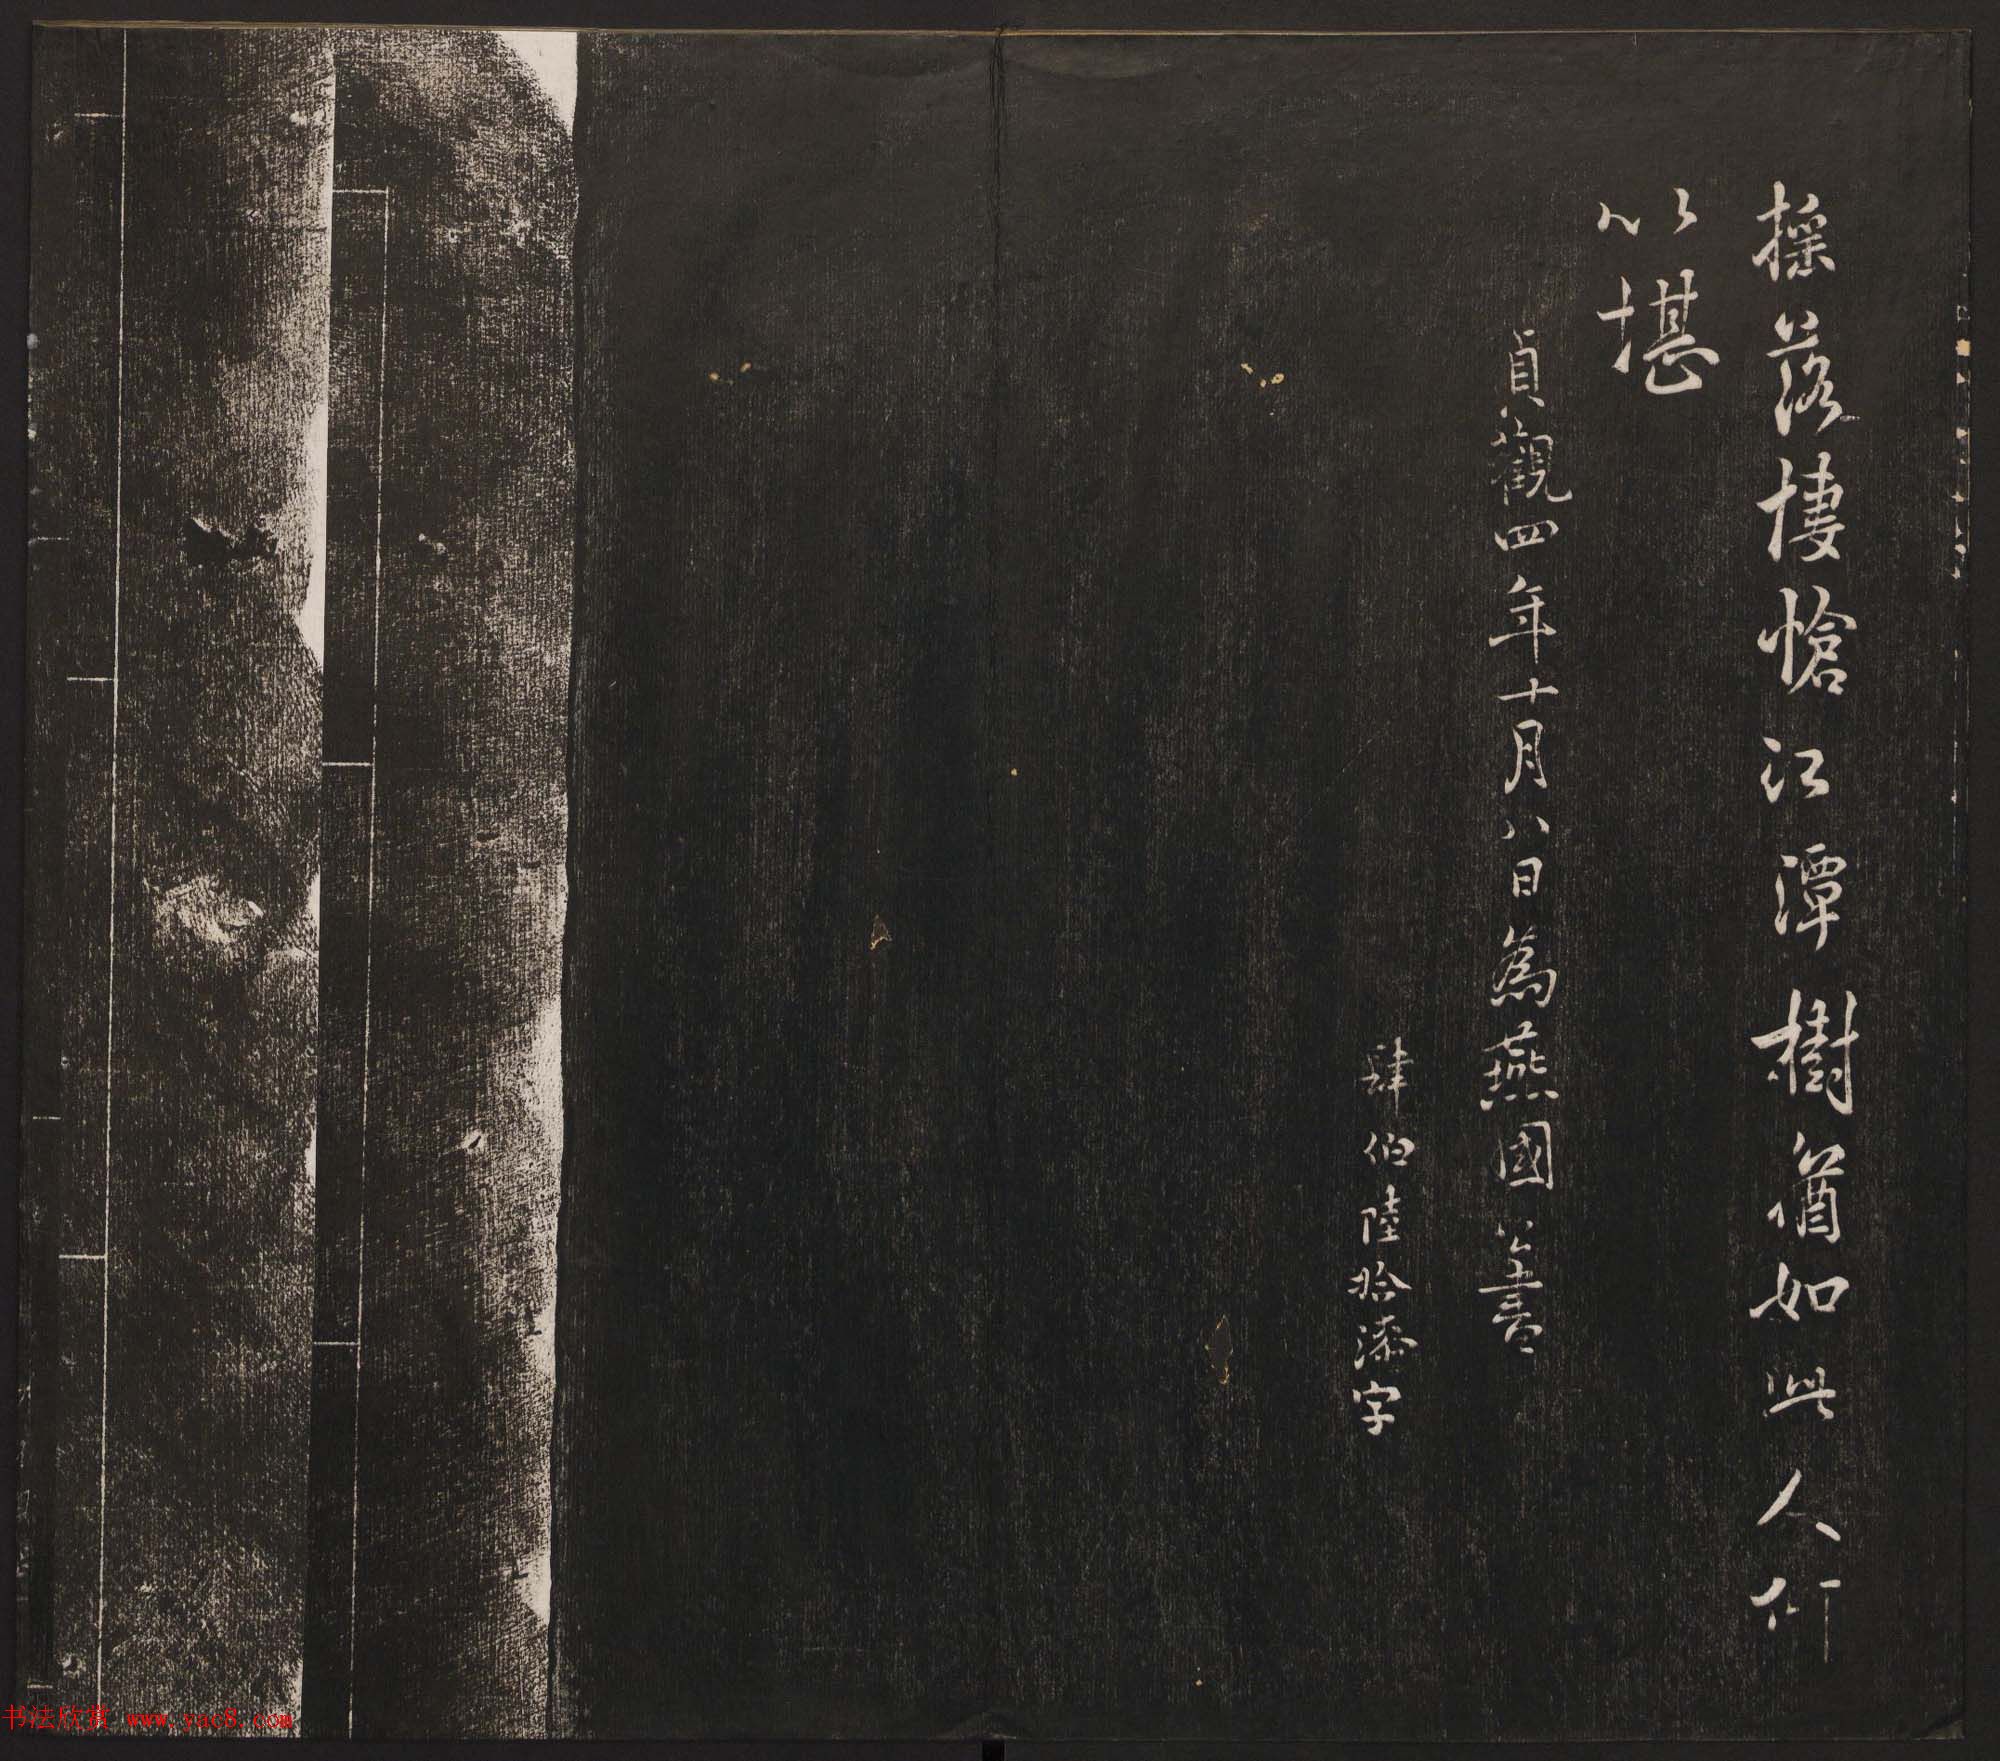 摇落悽愴江潭樹猶如此人何
以堪
貞觀四年十月八日為燕國公書
肆伯陸拾漆字
书法欣赏 www.yac8.com